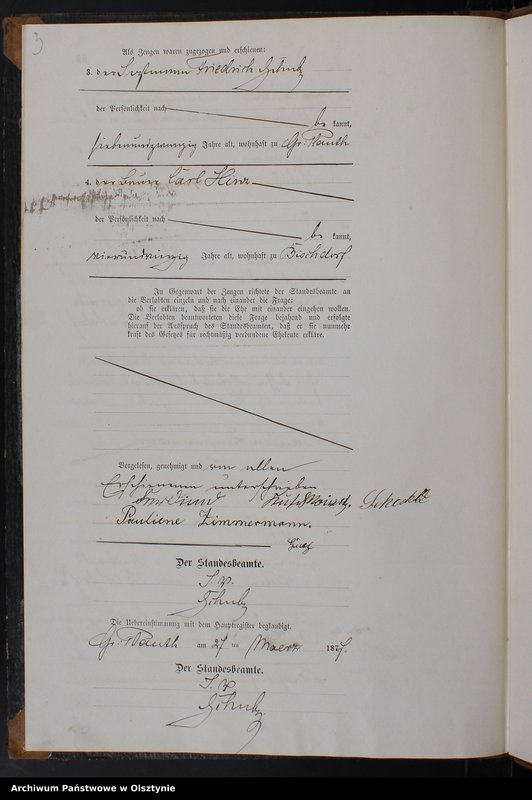 3
Als Zeugen waren zugezogen und erschienen:
3. der Friedrich Schulz
der Persönlichkeit nach
be kannt,
siebenundzwanzig Jahre alt, wohnhaft zu Gr. Wauth
4. der Bauer Carl Hinz
der Persönlichkeit nach
be kannt,
Jahre alt, wohnhaft zu Bischdorf
In Gegenwart der Zeugen richtete der Standesbeamte an
die Verlobten einzeln und nach einander die Frage:
ob sie erklären, daß sie die Ehe mit einander eingehen wollen.
Die Verlobten beantworteten diese Frage bejahend und erfolgte
hierauf der Ausspruch des Standesbeamten, daß er sie nunmehr
kraft des Gesetzes für rechtmäßig verbundene Eheleute erkläre.
Vorgelesen, genehmigt und von allen
Erschienenen unterschrieben
Pauliene Zimmermann.
Der Standesbeamte.
I. V.
Schulz
Die Uebereinstimmung mit dem Hauptregister beglaubigt.
Gr. Wauth am 27 ten Maerz 1877.
Der Standesbeamte.
I. V.
Schulz.
Archiwum Państwowe w Olsztynie